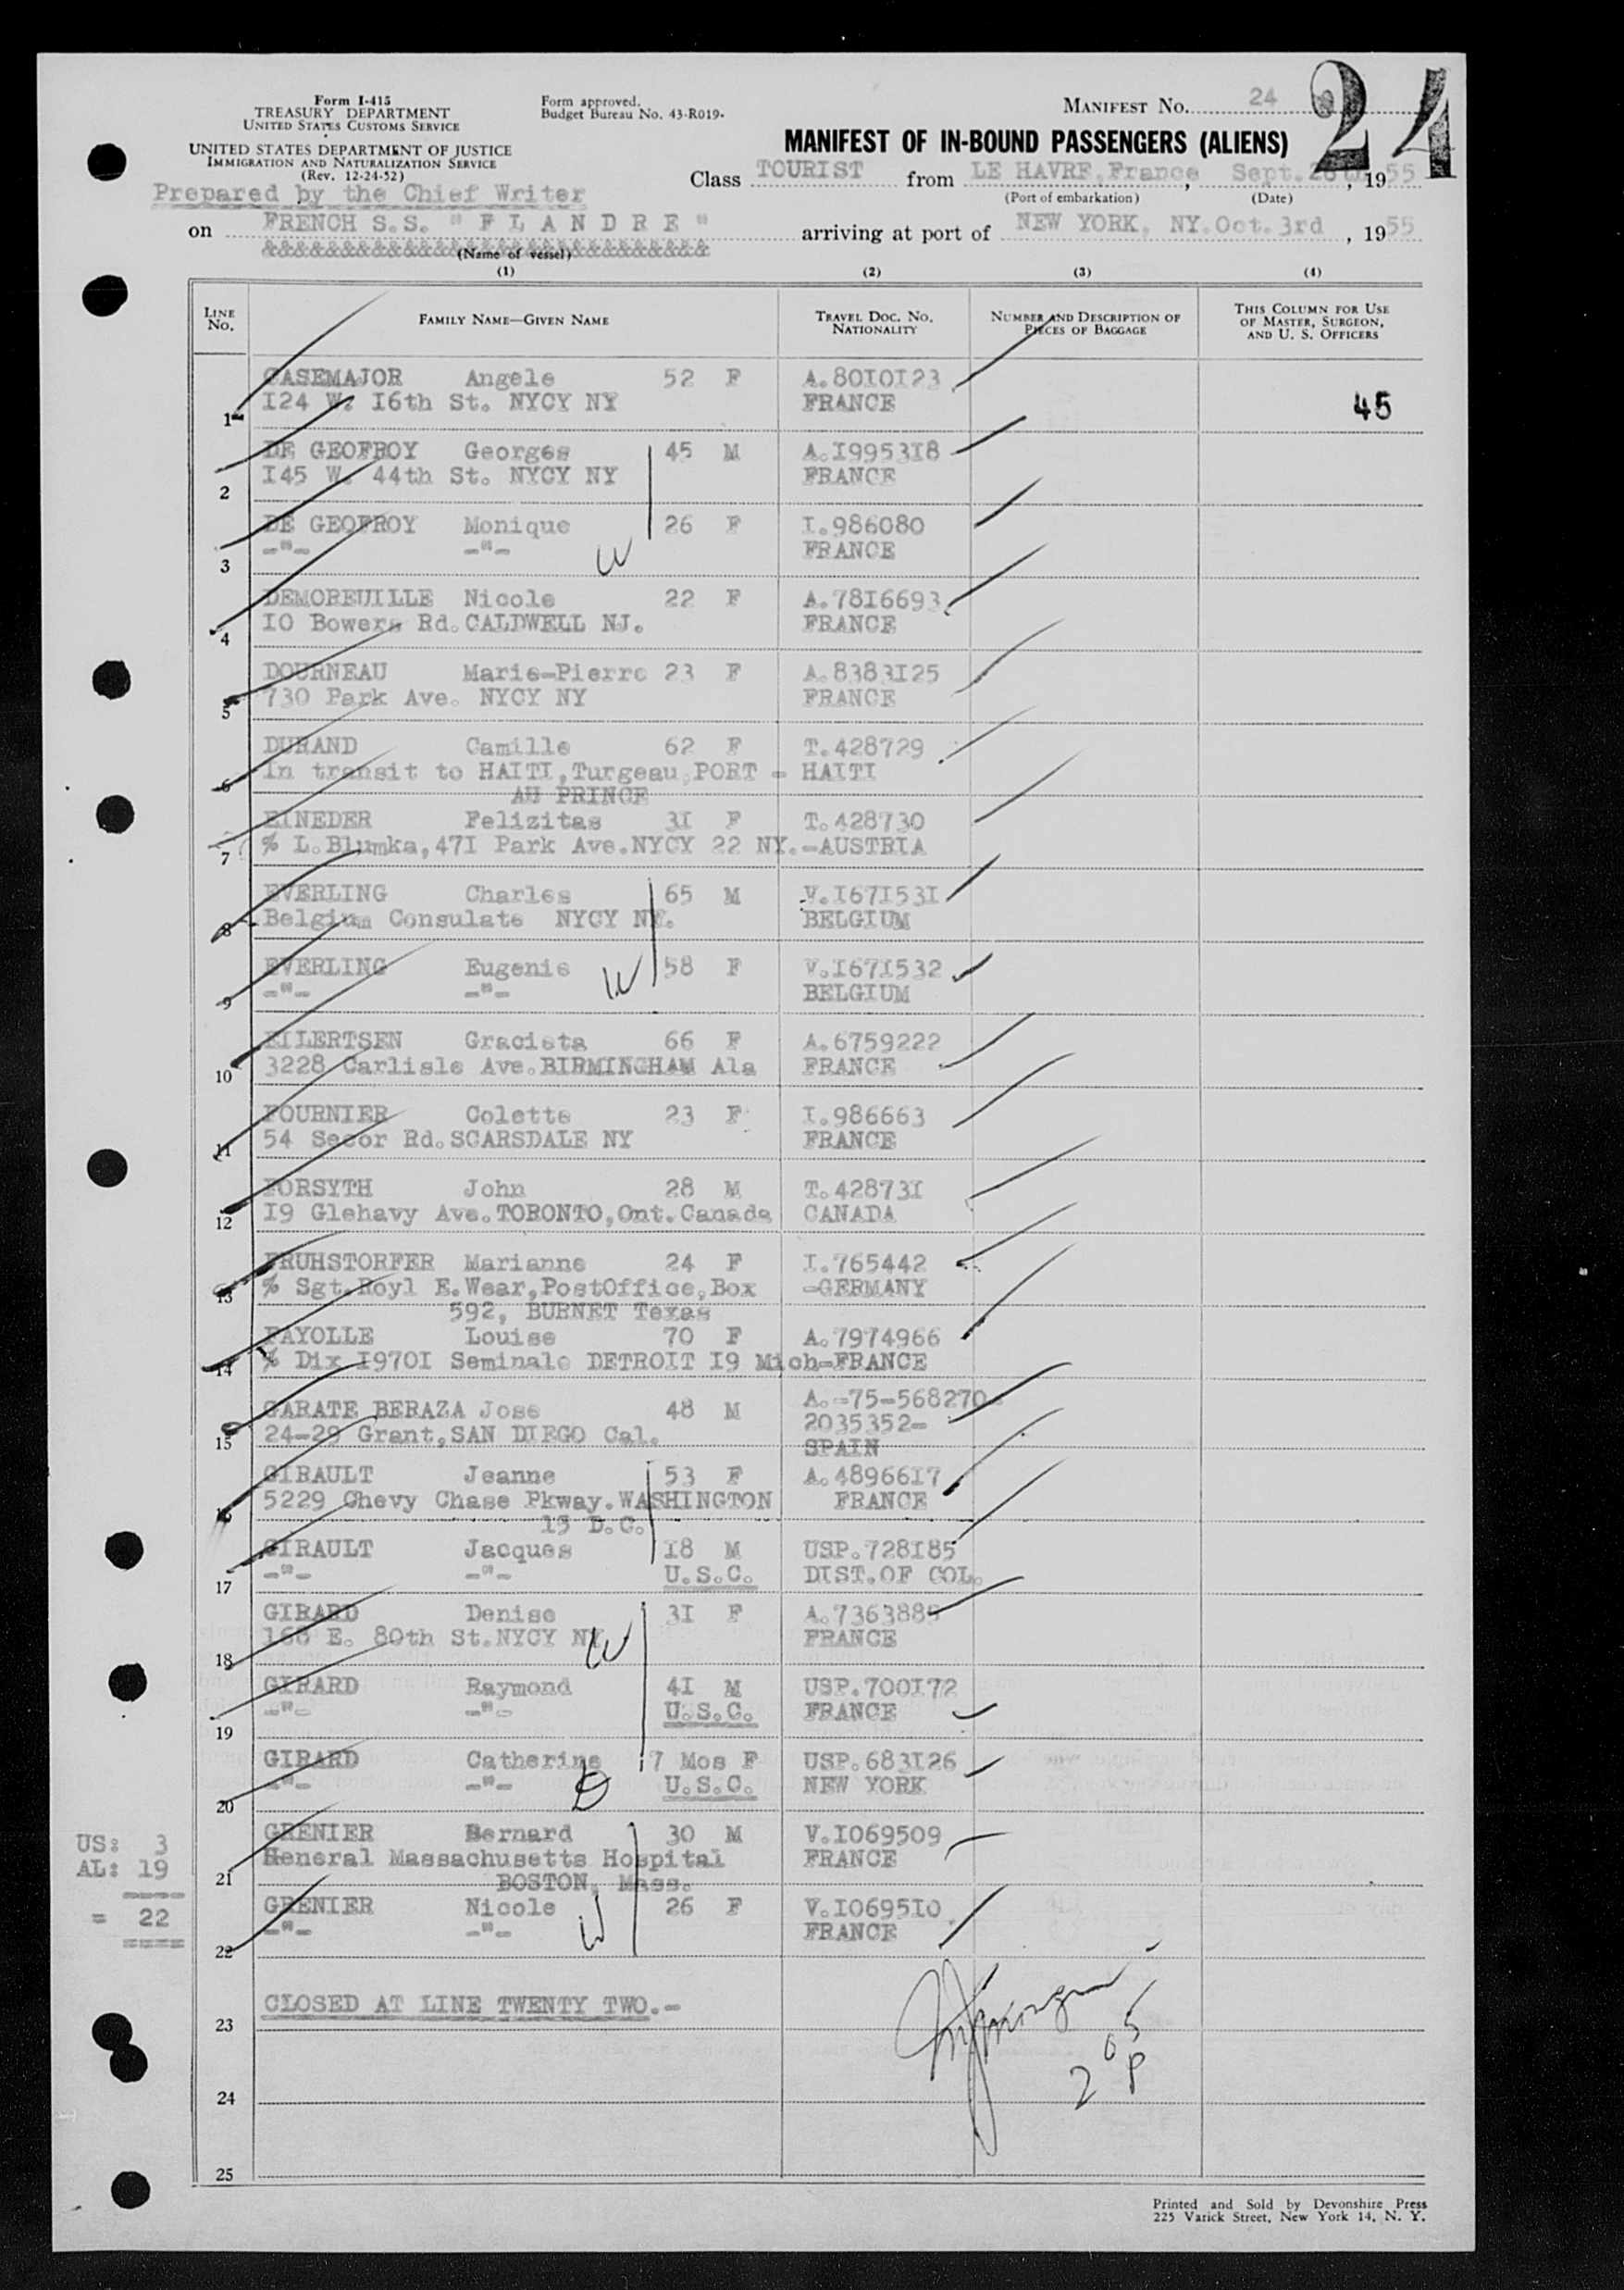 Form I-415
TREASURY DEPARTMENT
UNITED STATES CUSTOMS SERVICE
UNITED STATES DEPARTMENT OF JUSTICE
IMMIGRATION AND NATURALIZATION SERVICE
(Rev. 12-24-52)
Prepared by the Chief Writer
Form approved.
Budget Bureau No. 43-R019.
MANIFEST NO. 24
24
MANIFEST OF IN-BOUND PASSENGERS (ALIENS)
Class TOURIST from LE HAVRE, France, Sept. 28th, 1955
(Port of embarkation) (Date)
on FRENCH S.S. " F L A N D R E " arriving at port of NEW YORK, NY. Oct. 3rd, 1955
&&&&&&&&&&&&&&&&&&&&&&&&&&&&
(Name of vessel)
(1) (2) (3) (4)
LINE NO. FAMILY NAME—GIVEN NAME TRAVEL DOC. NO. NATIONALITY NUMBER AND DESCRIPTION OF PIECES OF BAGGAGE THIS COLUMN FOR USE OF MASTER, SURGEON, AND U. S. OFFICERS
CASEMAJOR Angele 52 F A.80I0I23
1 I24 W. I6th St. NYCY NY FRANCE 45
DE GEOFROY Georges 45 M A.I9953I8
2 I45 W. 44th St. NYCY NY FRANCE
DE GEOFROY Monique 26 F I.986080
3 -"- -"- W FRANCE
DEMOREUILLE Nicole 22 F A.78I6693
4 IO Bowers Rd. CALDWELL NJ. FRANCE
DOURNEAU Marie-Pierre 23 F A.8383I25
5 730 Park Ave. NYCY NY FRANCE
DURAND Camille 62 F T.428729
6 In transit to HAITI, Turgeau, PORT - HAITI
AU PRINCE
EINEDER Felizitas 3I F T.428730
7 % L.Blumka, 47I Park Ave. NYCY 22 NY.-AUSTRIA
EVERLING Charles 65 M V.I67I53I
8 Belgium Consulate NYCY NY. BELGIUM
EVERLING Eugenie W 58 F V.I67I532
9 -"- -"- BELGIUM
EILERTSEN Gracieta 66 F A.6759222
10 3228 Carlisle Ave. BIRMINGHAM Ala FRANCE
FOURNIER Colette 23 F I.986663
11 54 Secor Rd. SCARSDALE NY FRANCE
FORSYTH John 28 M T.42873I
12 I9 Glehavy Ave. TORONTO, Ont. Canada CANADA
FRUHSTORFER Marianne 24 F I.765442
13 % Sgt. Royl E. Wear, PostOffice, Box -GERMANY
592, BURNET Texas
FAYOLLE Louise 70 F A.7974966
14 % Dix I970I Seminale DETROIT I9 Mich-FRANCE
GARATE BERAZA Jose 48 M A.-75-568270-
2035352-
15 24-29 Grant, SAN DIEGO Cal. SPAIN
GIRAULT Jeanne 53 F A.48966I7
16 5229 Chevy Chase Pkway. WASHINGTON FRANCE
I5 D.C.
GIRAULT Jacques I8 M USP.728I85
17 -"- -"- U.S.C. DIST.OF COL.
GIRARD Denise 3I F A.7363885
18 I68 E. 80th St. NYCY NY W FRANCE
GIRARD Raymond 4I M USP.700I72
19 -"- -"- U.S.C. FRANCE
GIRARD Catherine 7 Mos F USP.683I26
20 -"- -"- D U.S.C. NEW YORK
GRENIER Bernard 30 M V.I069509
21 General Massachusetts Hospital FRANCE
BOSTON, Mass.
GRENIER Nicole 26 F V.I0695I0
22 -"- -"- W FRANCE
US: 3
AL: I9
= 22
23 CLOSED AT LINE TWENTY TWO.-
2 05 P
24
25
Printed and Sold by Devonshire Press
225 Varick Street, New York 14, N. Y.